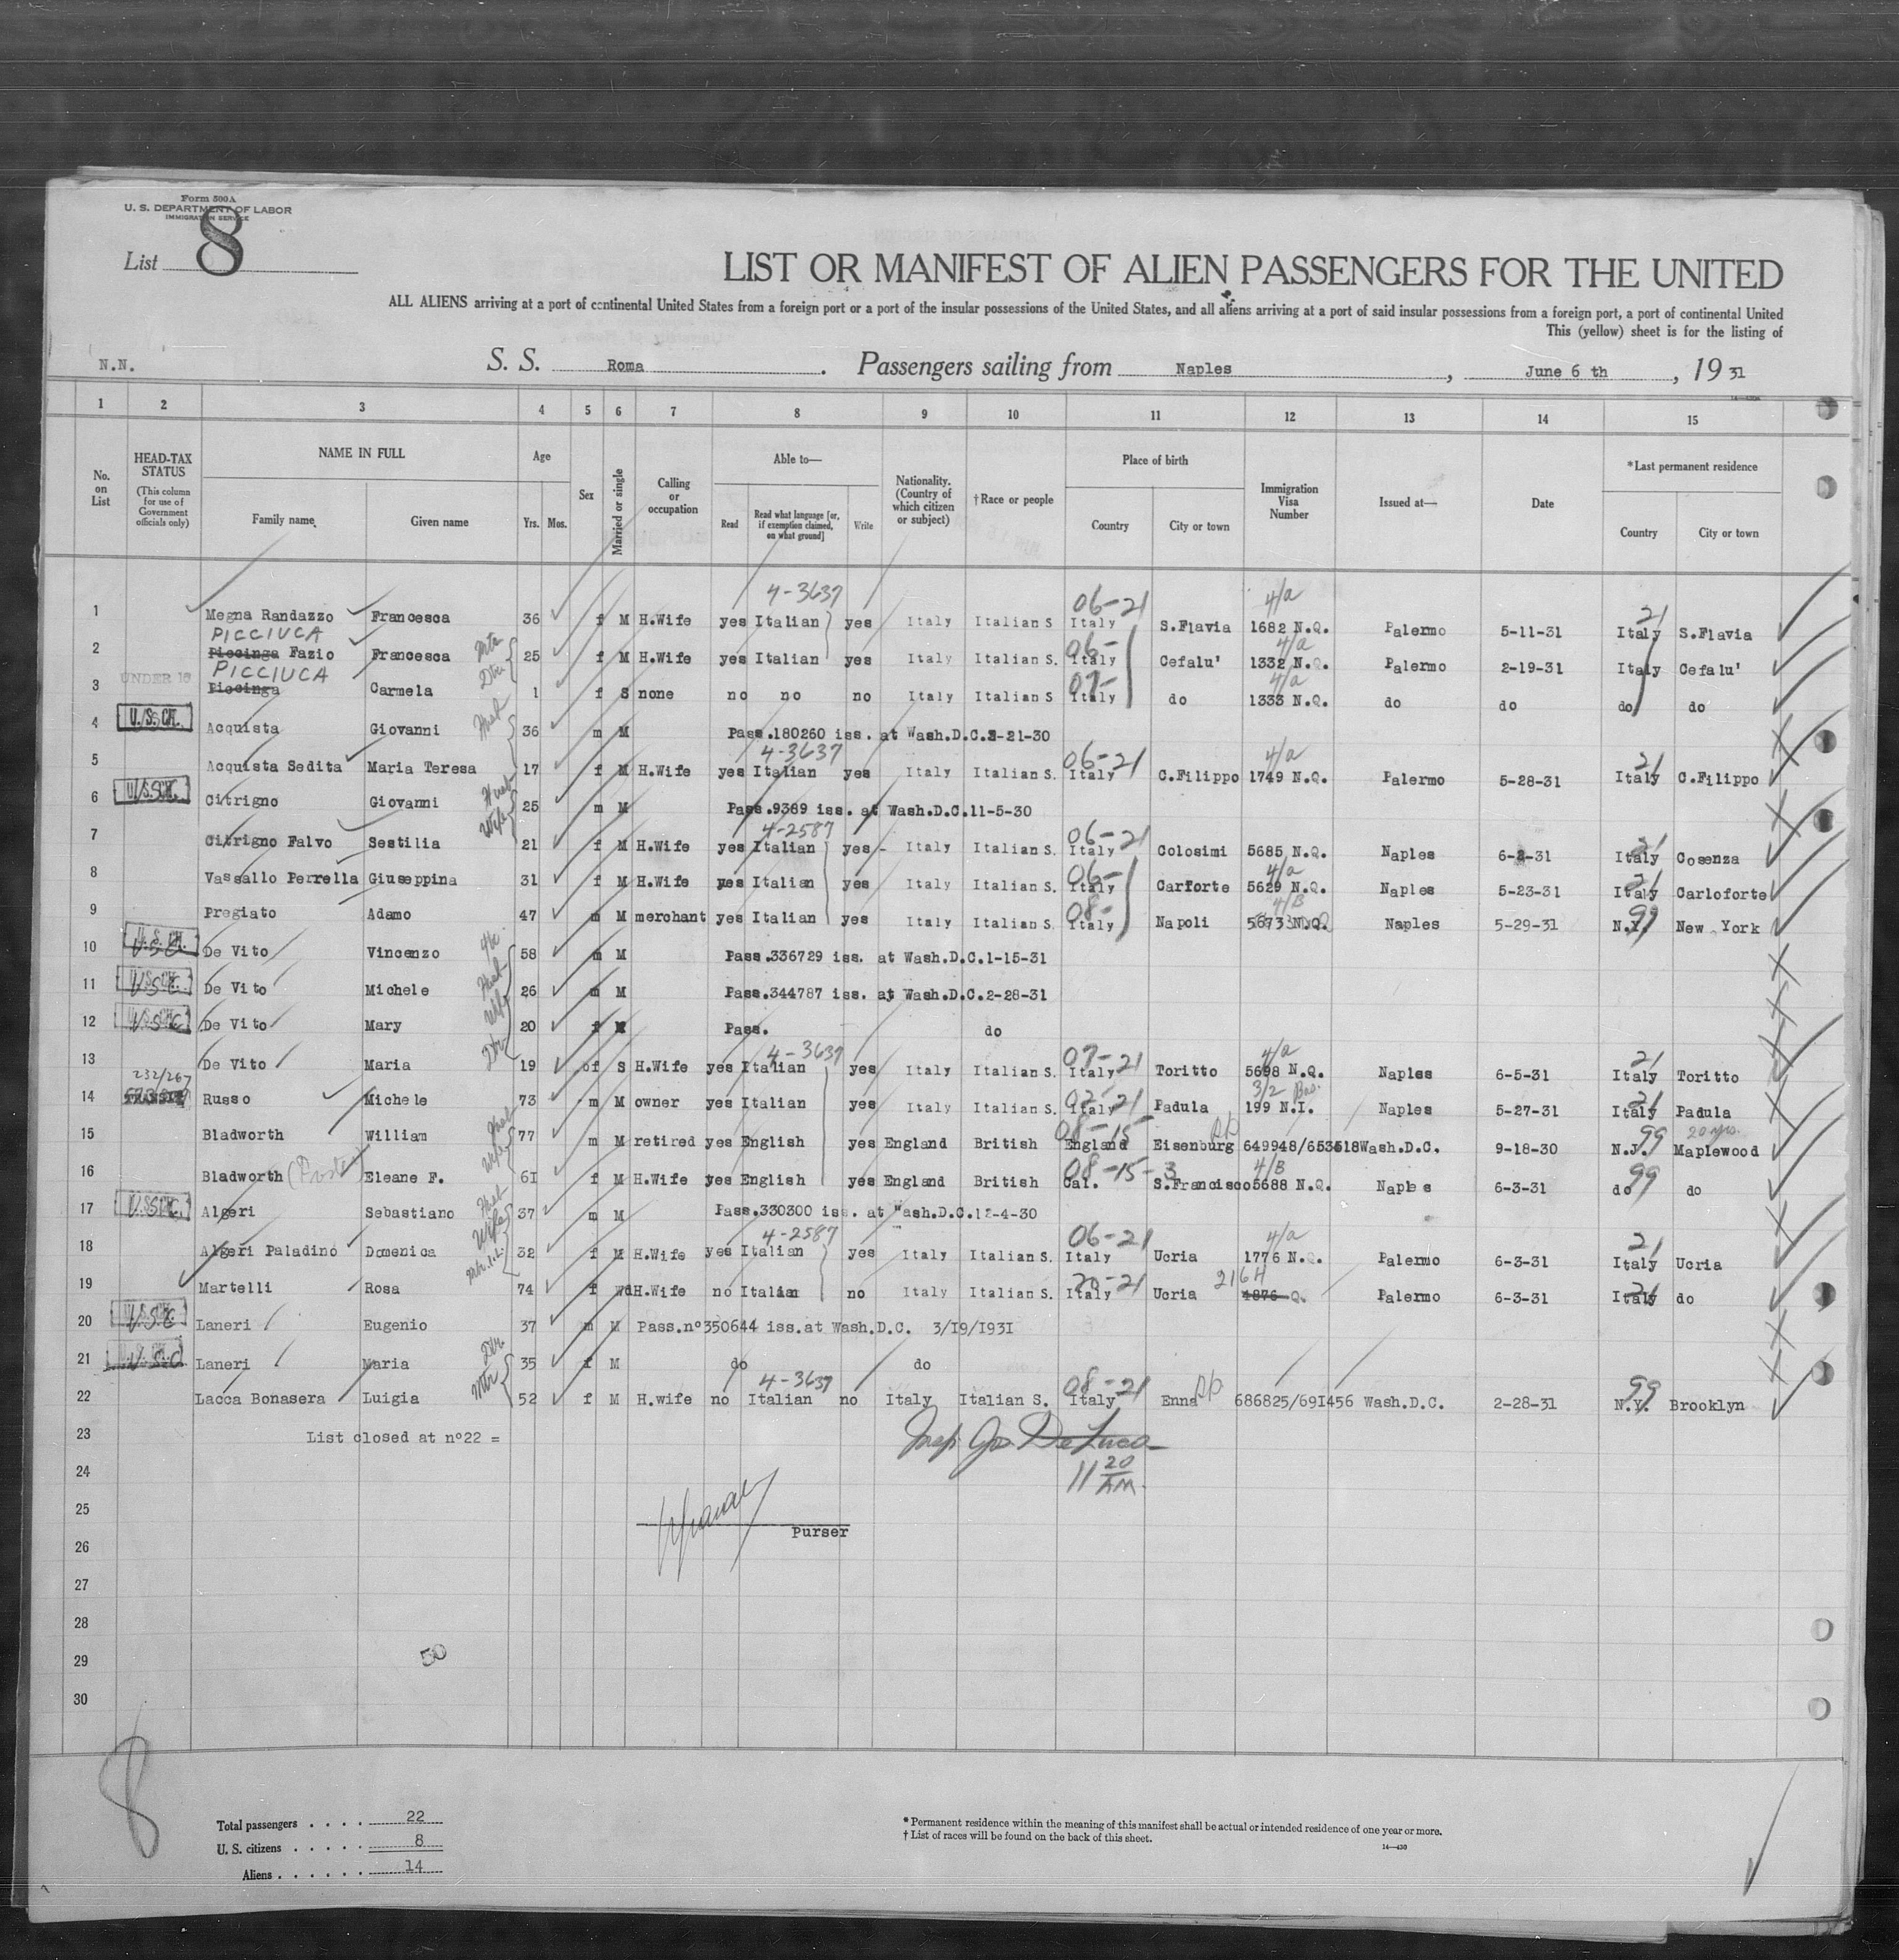 Form 500A
U. S. DEPARTMENT OF LABOR
IMMIGRATION SERVICE
List 8
LIST OR MANIFEST OF ALIEN PASSENGERS FOR THE UNITED
ALL ALIENS arriving at a port of continental United States from a foreign port or a port of the insular possessions of the United States, and all aliens arriving at a port of said insular possessions from a foreign port, a port of continental United
This (yellow) sheet is for the listing of
N.N. S. S. Roma. Passengers sailing from Naples, June 6 th, 19 31
1 2 3 4 5 6 7 8 9 10 11 12 13 14 15
No. on List
HEAD-TAX STATUS (This column for use of Government officials only)
NAME IN FULL Family name Given name
Age Yrs. Mos.
Sex
Married or single
Calling or occupation
Able to— Read Read what language [or, if exemption claimed, on what ground] Write
Nationality. (Country of which citizen or subject)
† Race or people
Place of birth Country City or town
Immigration Visa Number
Issued at—
Date
*Last permanent residence Country City or town
4-3637 06-21 4/a 21
1 Megna Randazzo Francesca 36 f M H.Wife yes Italian yes Italy Italian S Italy S.Flavia 1682 N.Q. Palermo 5-11-31 Italy S.Flavia
PICCIUCA 06- 4/a
2 Piccinga Fazio Francesca 25 f M H.Wife yes Italian yes Italy Italian S. Italy Cefalu' 1332 N.Q. Palermo 2-19-31 Italy Cefalu'
UNDER 16 PICCIUCA 07- 4/a
3 Piccinga Carmela 1 f S none no no no Italy Italian S Italy do 1333 N.Q. do do do do
4 U.S.CIT. Acquista Giovanni 36 m M Pass.180260 iss. at Wash.D.C.3-21-30
4-3637 06-21 4/a 21
5 Acquista Sedita Maria Teresa 17 f M H.Wife yes Italian yes Italy Italian S. Italy C.Filippo 1749 N.Q. Palermo 5-28-31 Italy C.Filippo
6 U.S.CIT. Citrigno Giovanni Husb 25 m M Pass.9389 iss. at Wash.D.C.11-5-30
4-2587 06-21 21
7 Citrigno Falvo Sestilia Wife 21 f M H.Wife yes Italian yes - Italy Italian S. Italy Colosimi 5685 N.Q. Naples 6-2-31 Italy Cosenza
06- 4/a 21
8 Vassallo Perrella Giuseppina 31 f M H.Wife yes Italian yes Italy Italian S. Italy Carforte 5629 N.Q. Naples 5-23-31 Italy Carloforte
08- 4/B 99
9 Pregiato Adamo 47 m M merchant yes Italian yes Italy Italian S. Italy Napoli 5673 N.Q. Naples 5-29-31 N.Y. New York
10 U.S.CIT. De Vito Vincenzo 58 m M Pass.336729 iss. at Wash.D.C.1-15-31
11 USC De Vito Michele Husb 26 m M Pass.344787 iss. at Wash.D.C.2-28-31
12 USC De Vito Mary Wife 20 f M Pass. do
4-3637 07-21 4/a 21
13 De Vito Maria Dtr 19 f S H.Wife yes Italian yes Italy Italian S. Italy Toritto 5698 N.Q. Naples 6-5-31 Italy Toritto
232/267 02-21 3/2 21
14 TRANSIT Russo Michele 73 m M owner yes Italian yes Italy Italian S. Italy Padula 199 N.I. Naples 5-27-31 Italy Padula
08-15 99 20 yrs.
15 Bladworth William Husb 77 m M retired yes English yes England British England Eisenburg 649948/653518 Wash.D.C. 9-18-30 N.J. Maplewood
08-15-3 4/B 99
16 Bladworth Eleane F. Wife 61 f M H.Wife yes English yes England British Cal. S.Francisco 5688 N.Q. Naples 6-3-31 do do
17 USC Algeri Sebastiano Husb 37 m M Pass.330300 iss. at Wash.D.C.12-4-30
4-2587 06-21 4/a 21
18 Algeri Paladino Domenica Wife 32 f M H.Wife yes Italian yes Italy Italian S. Italy Ucria 1776 N.Q. Palermo 6-3-31 Italy Ucria
20-21 2164 21
19 Martelli Rosa 74 f Wd H.Wife no Italian no Italy Italian S. Italy Ucria 1876 Q. Palermo 6-3-31 Italy do
20 USC Laneri Eugenio 37 m M Pass.nº350644 iss.at Wash.D.C. 3/19/1931
21 USC Laneri Maria Dtr. 35 f M do do
4-3637 08-21 99
22 Lacca Bonasera Luigia Mtr 52 f M H.wife no Italian no Italy Italian S. Italy Enna 686825/691456 Wash.D.C. 2-28-31 N.Y. Brooklyn
23 List closed at nº22 =
Insp. De Luca
24 11 20 AM.
25
Purser
26
27
28
29 50
30
8
Total passengers . . . . 22
U. S. citizens . . . . . 8
Aliens . . . . . . 14
* Permanent residence within the meaning of this manifest shall be actual or intended residence of one year or more.
† List of races will be found on the back of this sheet.
14—430